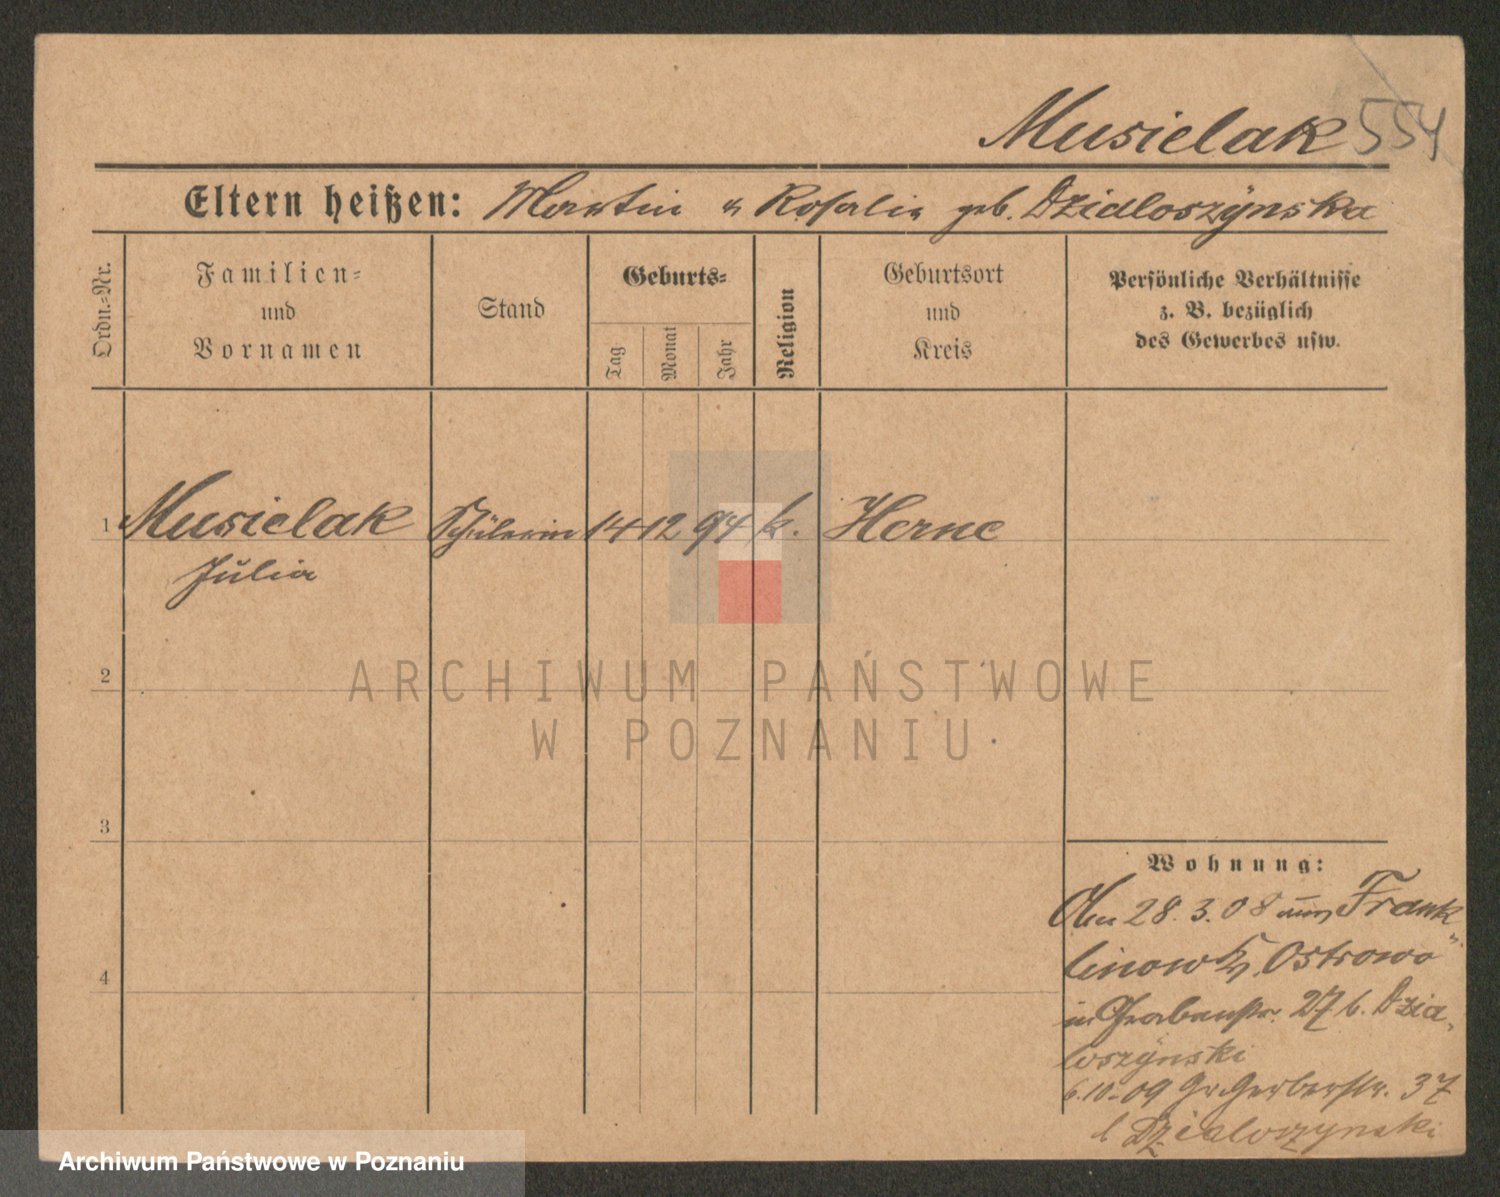 Musielak 554
Eltern heißen: Martin u Rosalie geb. Dzialoszynska
Ordn.-Nr.
Familien-
und
Vornamen
Stand
Geburts-
Tag
Monat
Jahr
Religion
Geburtsort
und
Kreis
Persönliche Verhältnisse
z. B. bezüglich
des Gewerbes usw.
1 Musielak Schülerin 14 12 94 k. Herne
Julia
2
3
4
ARCHIWUM PAŃSTWOWE
W POZNANIU
Wohnung:
28. 3. 08 Frank
linow Ostrowo
in Grabenstr. 27 b. Dzia-
loszynski
6.10.09 Gr. Gerberstr. 37
Dzialoszynski
Archiwum Państwowe w Poznaniu